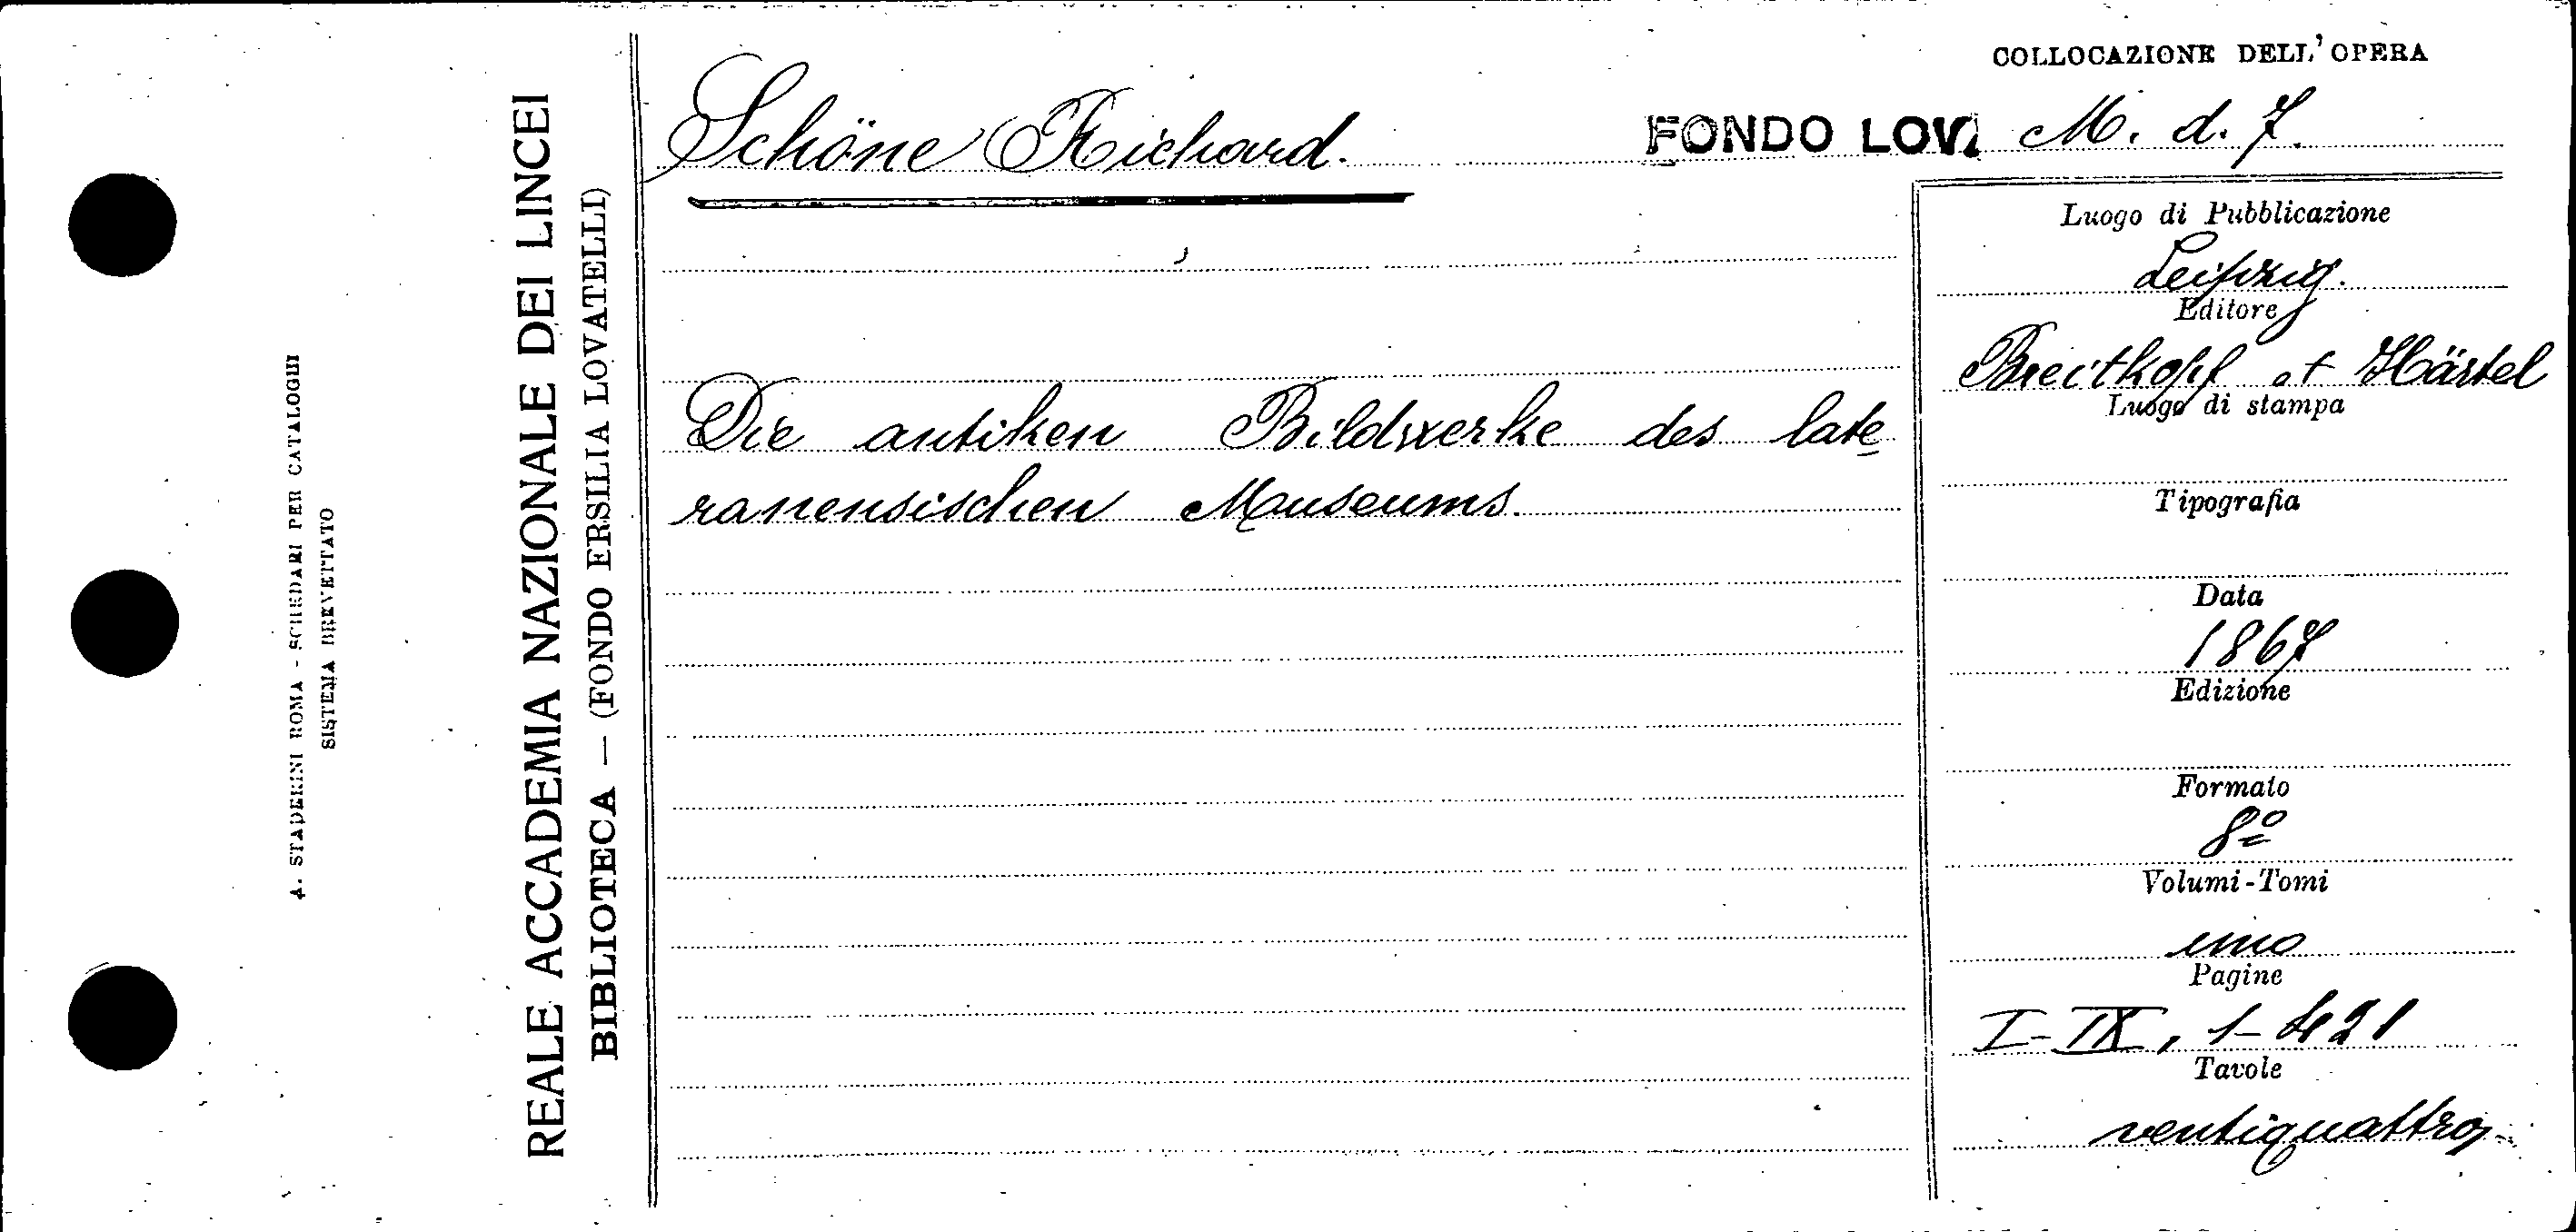 A. STADERINI ROMA - SCHEDARI PER CATALOGHI
SISTEMA BREVETTATO
REALE ACCADEMIA NAZIONALE DEI LINCEI
BIBLIOTECA — (FONDO ERSILIA LOVATELLI)
COLLOCAZIONE DELL'OPERA
Schöne Richard.
FONDO LOV. M. d. 7.
Die antiken Bildwerke des late-
ranensischen Museums.
Luogo di Pubblicazione
Leipzig.
Editore
Breitkopf et Härtel
Luogo di stampa
Tipografia
Data
1867
Edizione
Formato
8º
Volumi-Tomi
uno
Pagine
I-IX, 1-421
Tavole
ventiquattro